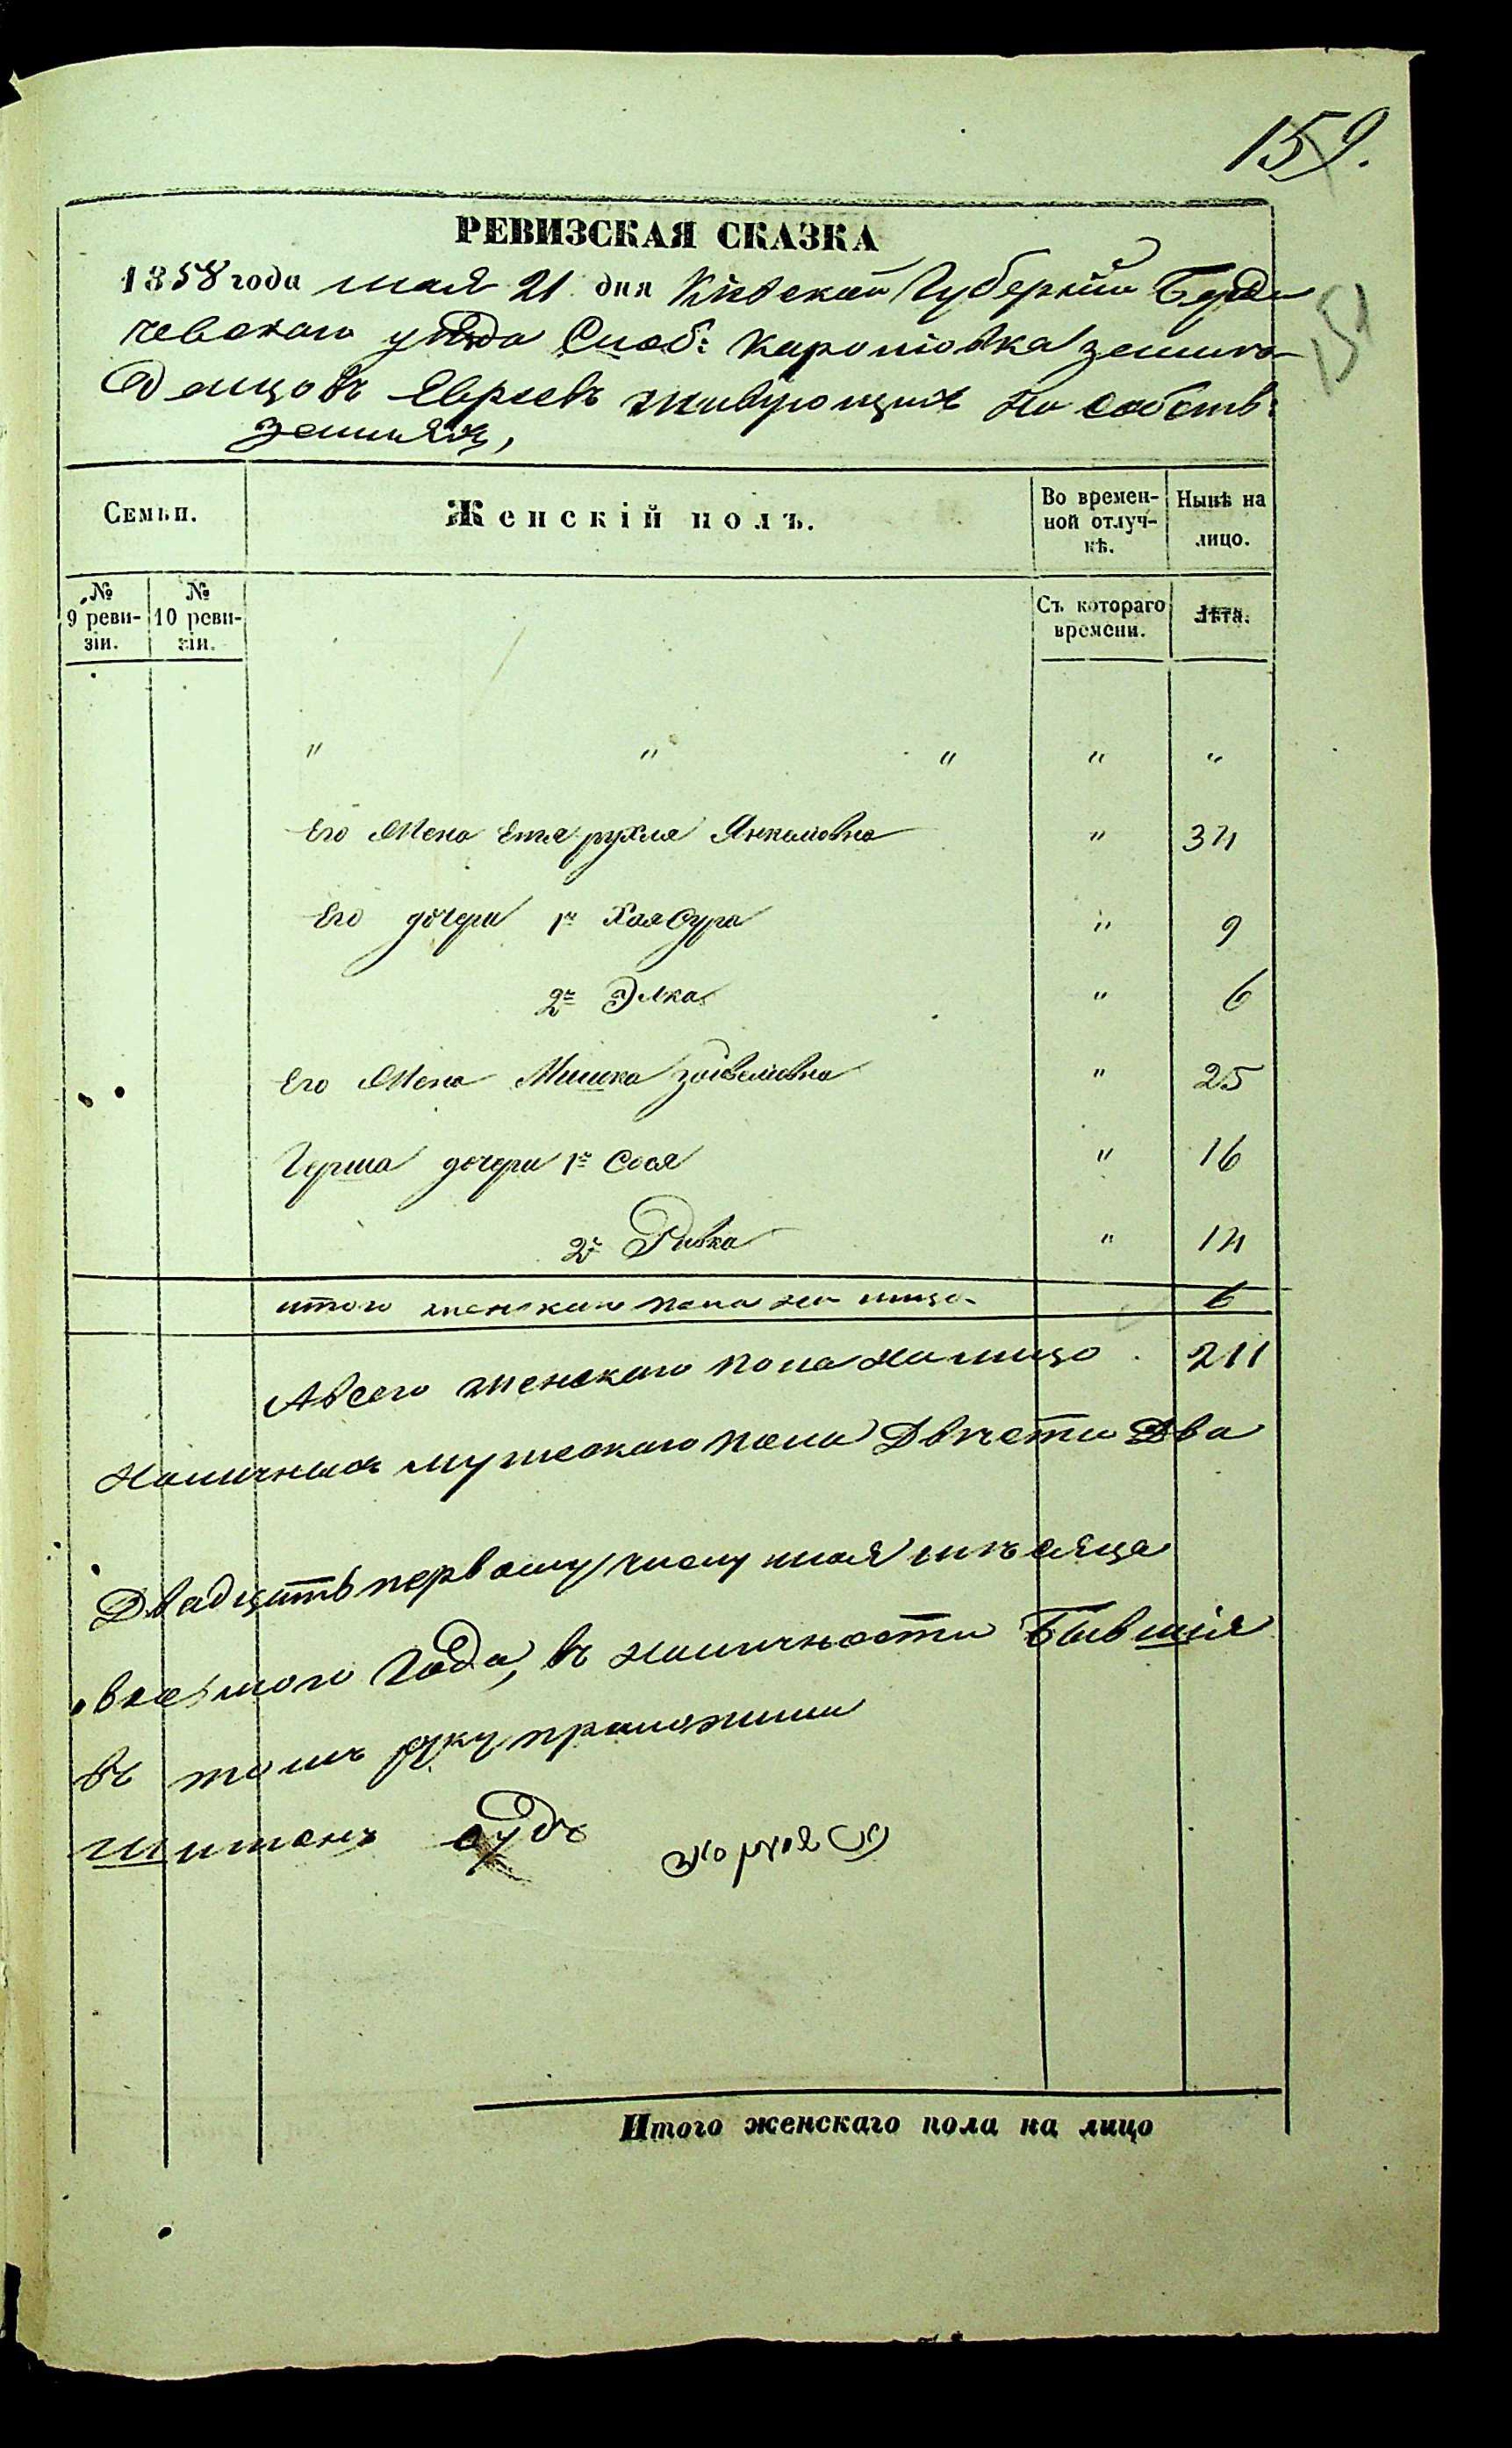 159.
151
РЕВИЗСКАЯ СКАЗКА
1858 года мая 21 дня Кіевской Губерніи Берди
чевскаго уѣзда Слоб: Каротовка земле-
дѣлцовъ Евреевъ живущихъ на собств:
земляхъ,
Семьи.
Женскій полъ.
Во времен-
ной отлуч-
кѣ.
Нынѣ на
лицо.
№
9 реви-
зіи.
№
10 реви-
зіи.
Съ котораго
времени.
Лѣта.
" " " " "
Его Жена Етя рухля Янкеловна " 34
Его дочери 1я Хая Сура " 9
2я Элка " 6
Его Жена Мишка " 25
Герша дочери 1я Сося " 16
2я Ривка " 14
итого женскаго пола на лицо 6
А всего женскаго пола на лицо . 211
Наличныхъ мужескаго пола Двѣсти Два
Двадцать первому числу мая мѣсяца
восьмого Года, въ наличности Бывшія
въ томъ руку приложили